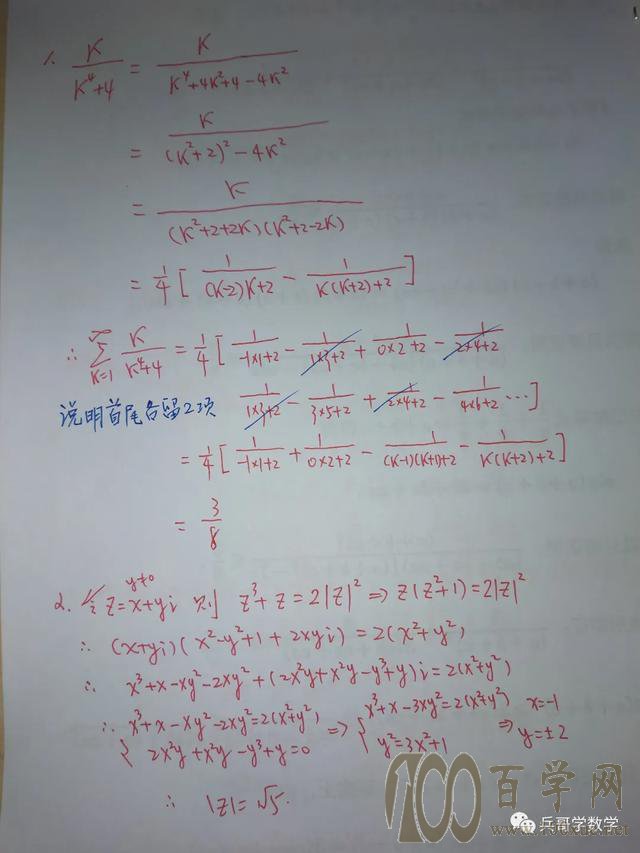 1. K/(K⁴+4) = K/(K⁴+4K²+4-4K²)
= K/((K²+2)²-4K²)
= K/((K²+2+2K)(K²+2-2K))
= 1/4 [ 1/((K-2)K+2) - 1/(K(K+2)+2) ]
∴ ∑_{K=1}^{∞} K/(K⁴+4) = 1/4 [ 1/(-1×1+2) - 1/(1×3+2) + 1/(0×2+2) - 1/(2×4+2)
说明首尾各留2项 1/(1×3+2) - 1/(3×5+2) + 1/(2×4+2) - 1/(4×6+2) … ]
= 1/4 [ 1/(-1×1+2) + 1/(0×2+2) - 1/((K-1)(K+1)+2) - 1/(K(K+2)+2) ]
= 3/8
2. 令 z=x+yi y≠0 则 z³+z=2|z|² ⇒ z(z²+1)=2|z|²
∴ (x+yi)(x²-y²+1+2xyi)=2(x²+y²)
∴ x³+x-xy²-2xy²+(2x²y+x²y-y³+y)i=2(x²+y²)
∴ { x³+x-xy²-2xy²=2(x²+y²) ⇒ { x³+x-3xy²=2(x²+y²) ⇒ x=-1
2x²y+x²y-y³+y=0 y²=3x²+1 y=±2
∴ |z|=√5.
100百学网
兵哥学数学